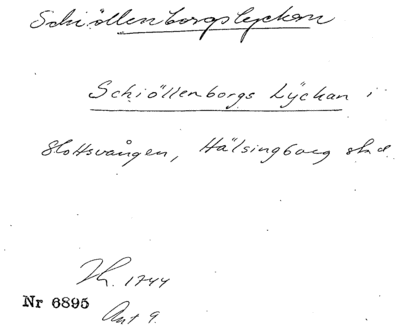 Schiöllenborgslyckan
Schiöllenborgs Lÿckan i
Slottsvången, Hälsingborg stad
Th. 1744
Nr 6895
Akt 9.